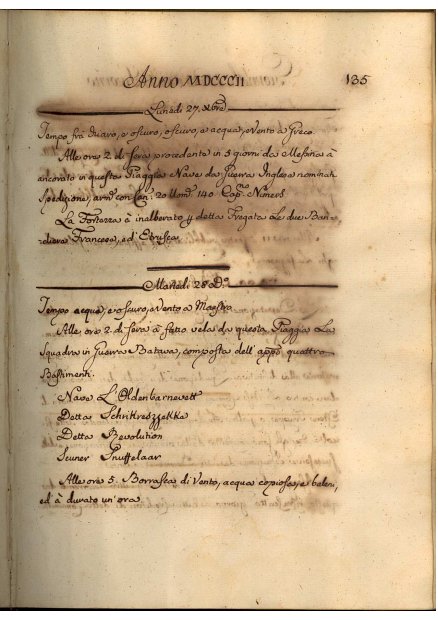 Anno MDCCCII 135
Lunedi 27. Xbre
Tempo frà chiaro, e oscuro, oscuro, e acqua, e Vento a Greco.
Alle ore 2 di sera procedente in 5 giorni da Messina à
ancorato in questa Piaggia Nave da Guerra Inglese nominata
Spedizione, armta con Can: 20 Uom: 140 Capno
La Fortezza à inalberato p detta Fregata Le due Ban-
diere Francese, ed' Etrusca.
Martedi 28 do
Tempo acqua, e oscuro, e Vento a Maestro
Alle ore 2 di sera à fatto vela da questa Piaggia La
Squadra in Guerra Batava, composta dell' appo quattro
Bastimenti.
Nave L'Oldenbarnevelt
Detta
Detta Revolution
Scuner Snuffelaar
Alle ore 5. Borrasca di Vento, acqua copiosa, e baleni,
ed à durato un'ora